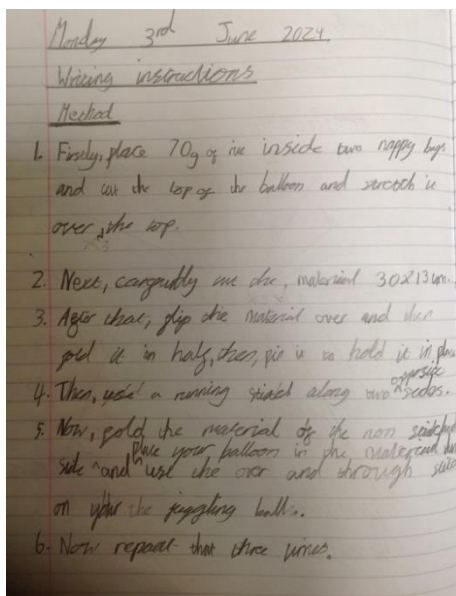 Monday 3rd June 2024
Writing instructions
Method
1. Firstly, place 70g of rice inside two nappy bags
and cut the top of the balloon and stretch it
over the top.
x3
2. Next, carefully cut the, material 30x13cm.
3. After that, flip the material over and then
fold it in half, then, pin it to hold it in place
4. Then, a running stitch along two opposite sides.
5. Now, fold the material of the non
side and place your balloon in the material
use the over and through
on the juggling balls.
6. Now repeat that three times.